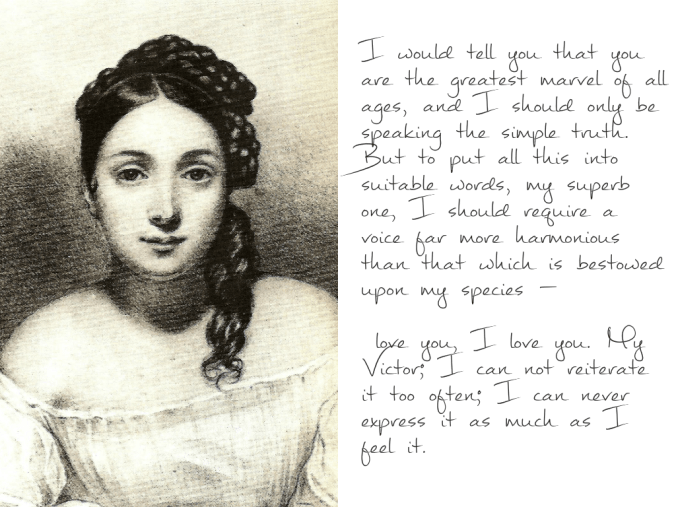 I would tell you that you
are the greatest marvel of all
ages, and I should only be
speaking the simple truth.
But to put all this into
suitable words, my superb
one, I should require a
voice far more harmonious
than that which is bestowed
upon my species —
love you, I love you. My
Victor; I can not reiterate
it too often; I can never
express it as much as I
feel it.